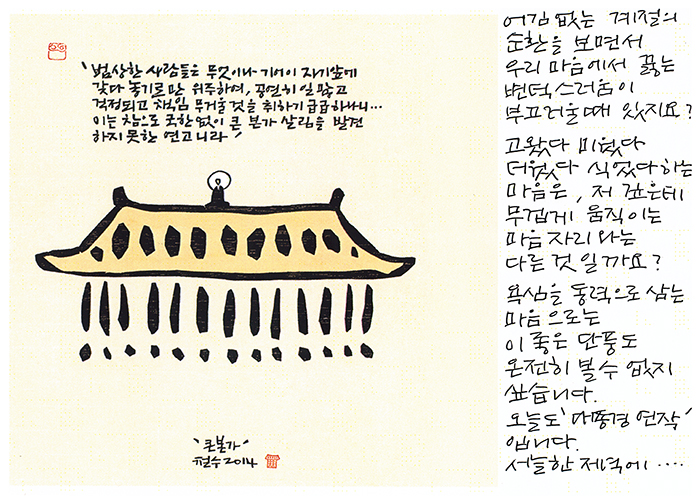 "범상한 사람들은 무엇이나 기어이 자기앞에
갖다 놓기로만 위주하여, 공연히 일 많고
걱정되고 책임 무거울것을 취하기 급급하나니…
이는 참으로 국한 없이 큰 본가 살림을 발견
하지 못한 연고니라"
"큰본가"
철수 2014
어김 없는 계절의
순환을 보면서
우리 마음에서 끓는
변덕스러움이
부끄러울때 있지요?
고왔다 미웠다
더웠다 식었다하는
마음은, 저 깊은데
무겁게 움직이는
마음자리와는
다른것 일까요?
욕심을 동력으로 삼는
마음으로는
이 좋은 단풍도
온전히 볼수 없지
싶습니다.
오늘도 '마풍경 연작'
입니다.
서늘한 저녁에 ....